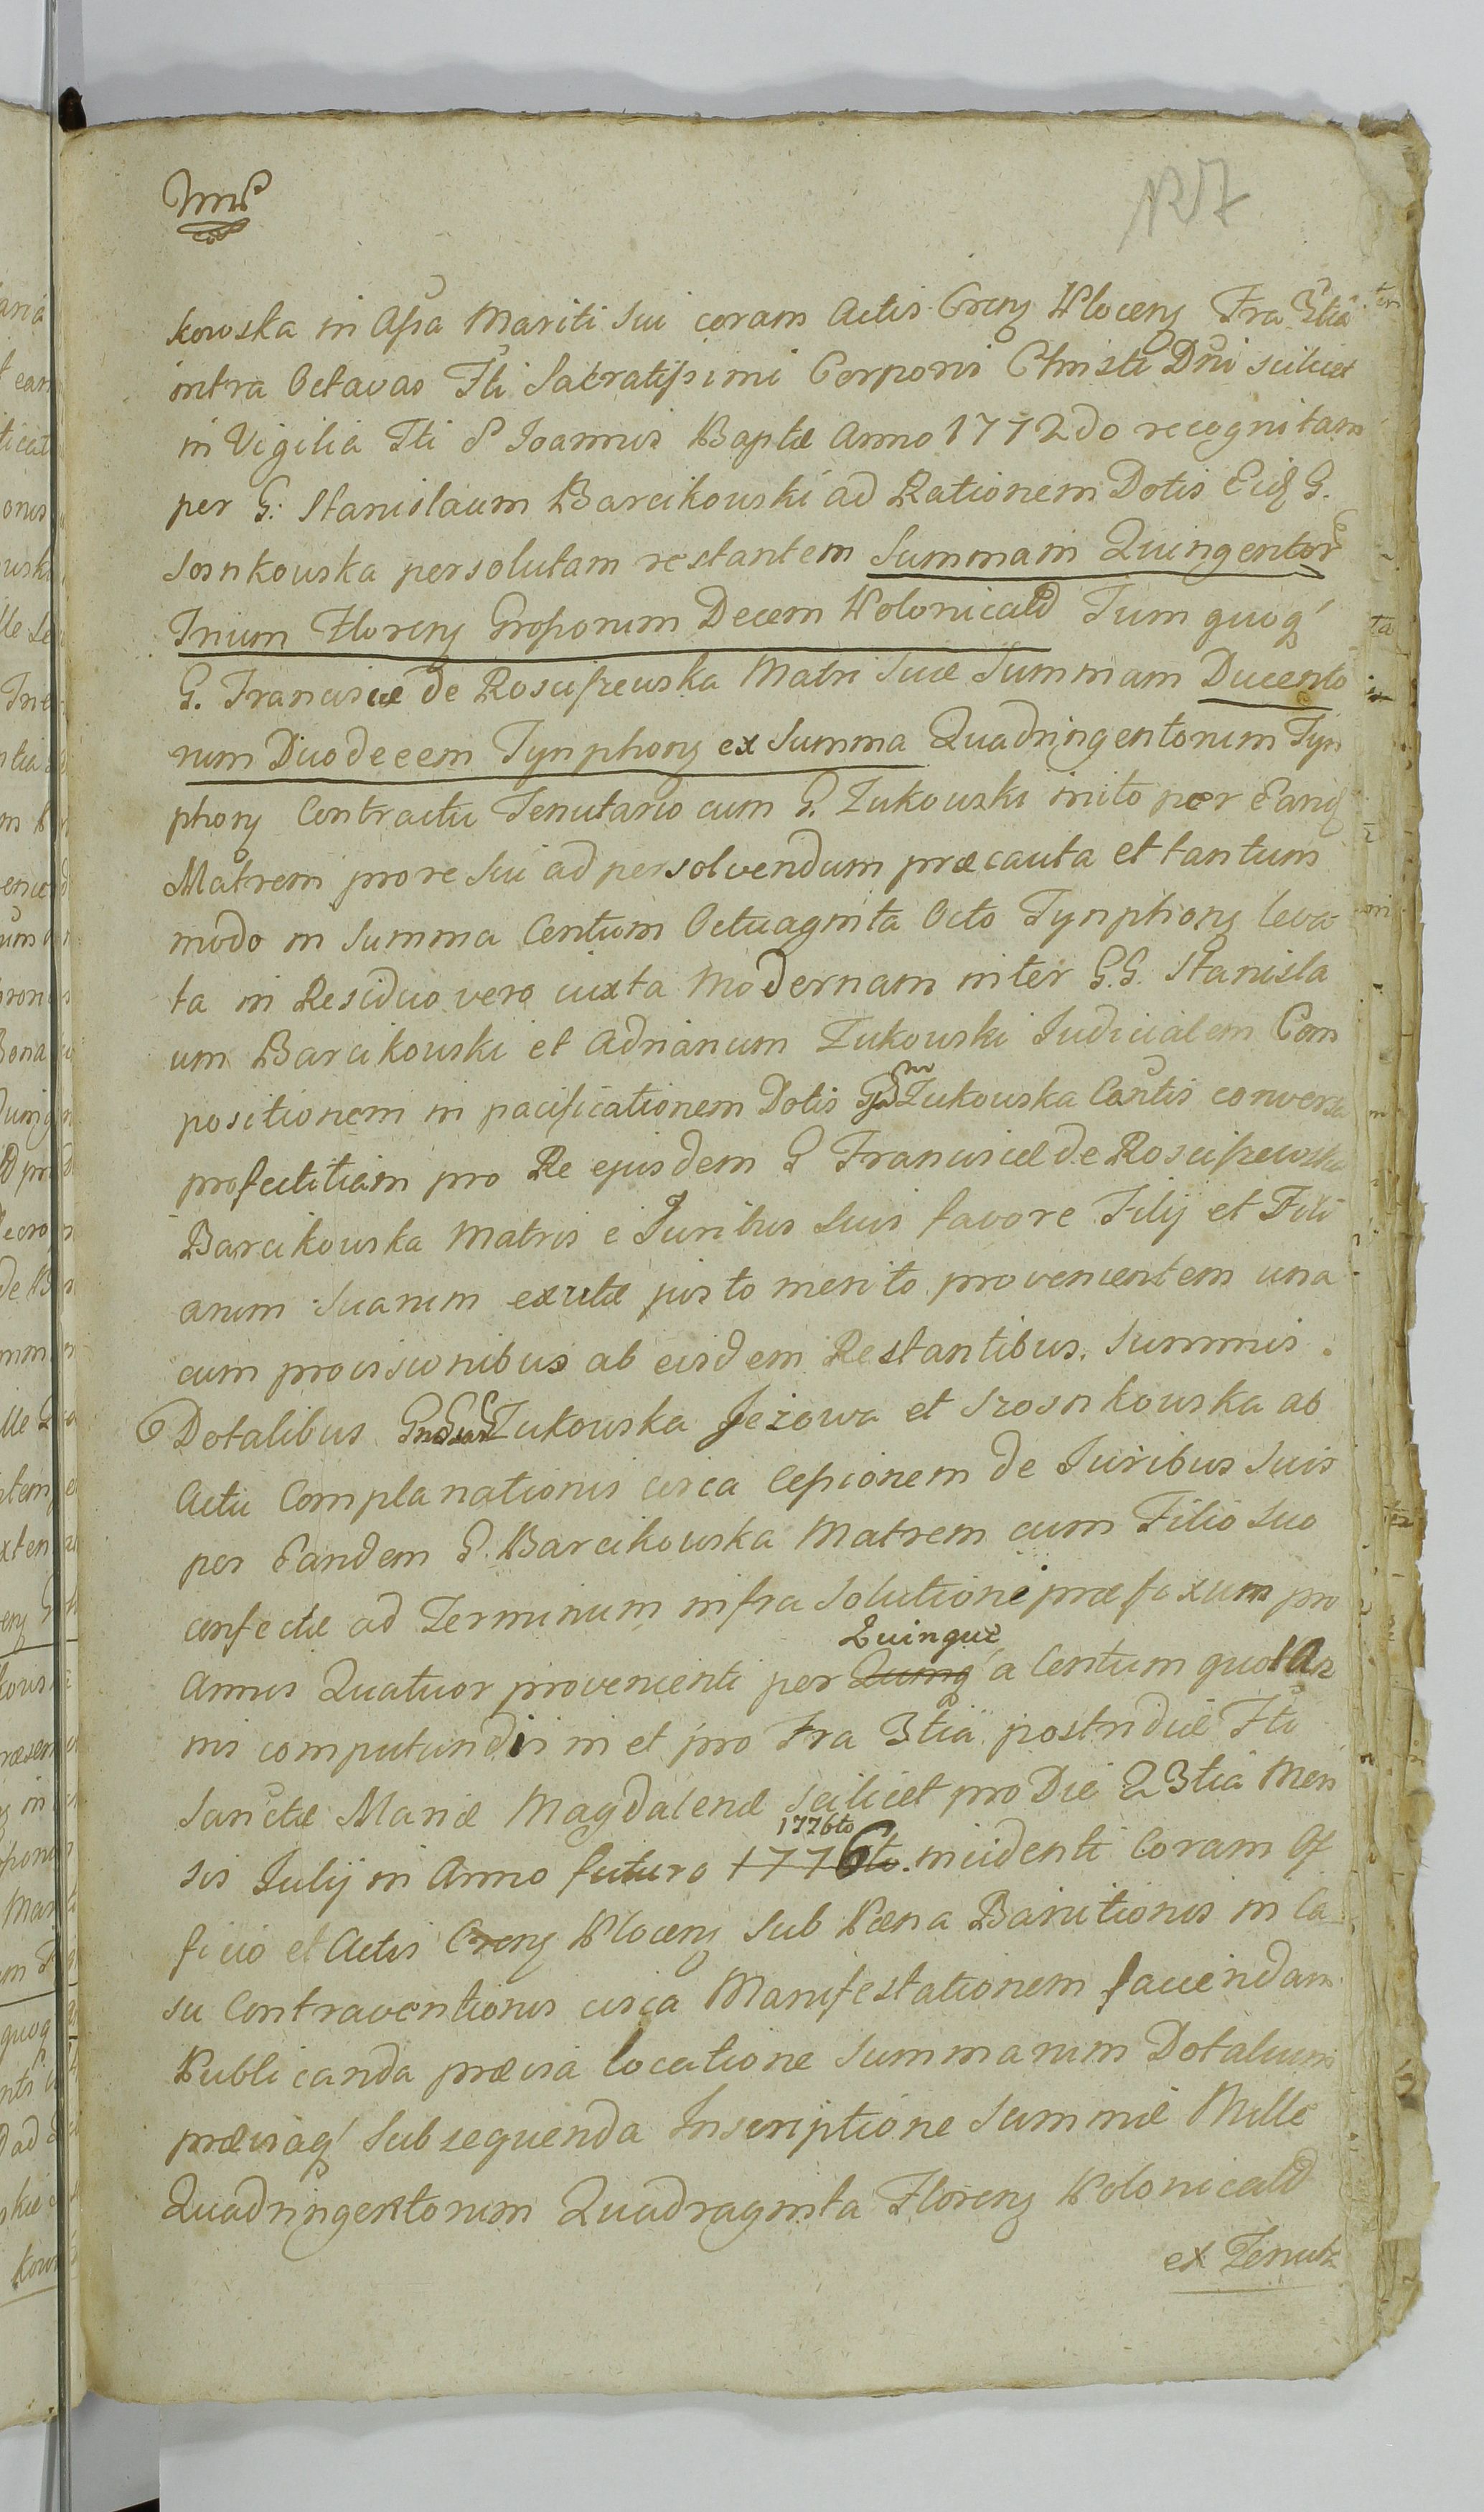 127
kowska in Assa Mariti sui coram Actis Creng Ploceng Fra 3tia
intra Octavas Fti Sacratissimi Corporis Christi Dni scilicet
in Vigilia Fti S Joannis Baptæ Anno 1772do recognitam
per G: Stanislaum Barcikowski ad Rationem Dotis Eidg G.
Sosnkowska persolutam restantem Summam Quingentor
Trium Floreng Grossorum Decem Polonicald Tum quoq
G. Franciscæ de Roscissewska Matri Suæ Summam Ducento
rum Duodecem Tynphong ex Summa Quadringentorum Tyn
phong Contractu Tenutario cum G. Zukowski inito per Eang
Matrem pro re sui ad persolvendum præcauta et tantum
modo in Summa Centum Octuaginta Octo Tynphong leva
ta in Residuo vero iuxta Modernam inter G.G. Stanisla
um Barcikowski et Adrianum Zukowski Judicialem Com
positionem in pacificationem Dotis Zukowska Cantis conversa
profectitiam pro Re ejusdem G Franciscæ de Roscissewska
Barcikowska Matris e Juribus suis favore Filij et Fili
arum Suarum exutæ justo merito provenientem una
cum provisionibus ab eisdem Restantibus Summis
Dotalibus Zukowska Jeżowa et Srosnkowska ab
Actu Complanationis circa Cessionem de Juribus suis
per Eandem G. Barcikowska Matrem cum Filio suo
confectæ ad Terminum infra solutioni præfixum pro
Quinque
Annis Quatuor provenienti per Quing a Centum quot An
nis computandis in et pro Fra 3tia postridie Fti
Sanctæ Mariæ Magdalenæ scilicet pro Die 23tia Men
1776to
sis Julij in Anno futuro 1776to. incidenti Coram Of
ficio et Actis Creng Ploceng sub Pæna Banitionis in Ca
su Contraventionis circa Manifestationem faciendam
Publicanda prævia locatione Summarum Dotalium
præviaq subsequenda Inscriptione Summæ Mille
Quadringentorum Quadraginta Floreng Polonicald
ex Tenutz